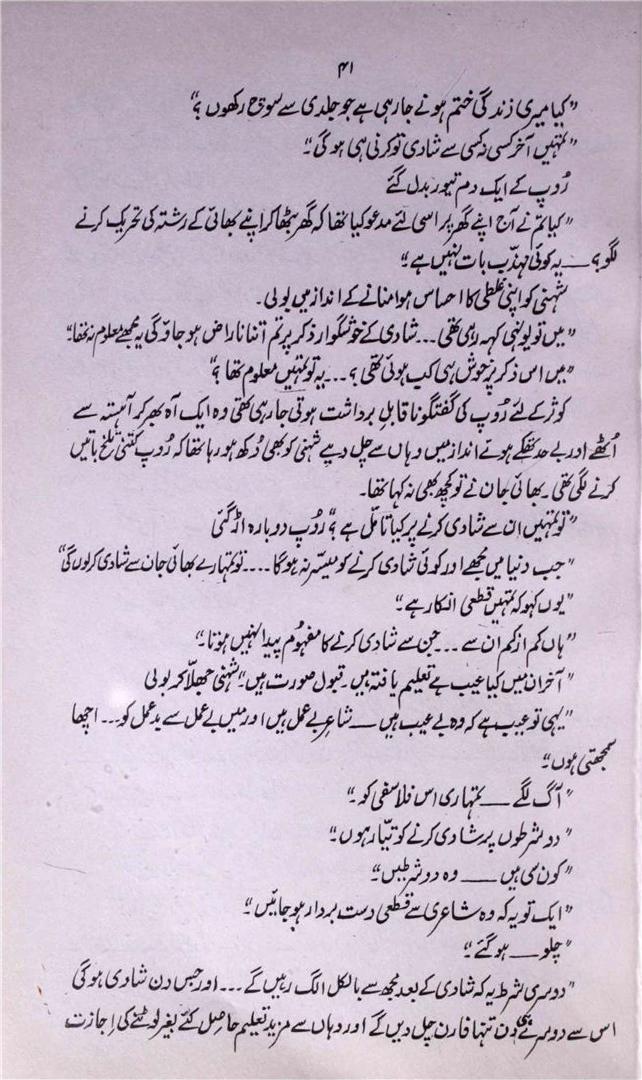 ۴۱
”کیا میری زندگی ختم ہونے جا رہی ہے جو جلدی سے سوچ رکھوں؟“
”تمہیں آخر کسی نہ کسی سے شادی تو کرنی ہی ہوگی۔“
رُوپ کے ایک دم تیور بدل گئے
”کیا تم نے آج اپنے گھر پر اسی لئے مدعو کیا تھا کہ گھر بٹھا کر اپنے بھائی کے رشتہ کی تحریک کرنے
لگو؟ ـــــ یہ کوئی مہذّب بات نہیں ہے۔“
شہنی کو اپنی غلطی کا احساس ہوا منانے کے انداز میں بولی۔
”میں تو یونہی کہہ رہی تھی... شادی کے خوشگوار ذکر پر تم اتنا ناراض ہو جاؤ گی یہ مجھے معلوم نہ تھا۔“
”میں اس ذکر پر خوش ہی کب ہوئی تھی؟... یہ تو تمہیں معلوم تھا؟“
کوثر کے لئے رُوپ کی گفتگو ناقابلِ برداشت ہوتی جا رہی تھی وہ ایک آہ بھر کر آہستہ سے
اُٹھے اور بے حد تھکے ہوئے انداز میں وہاں سے چل دیے شہنی کو بھی دُکھ ہو رہا تھا کہ رُوپ کتنی تلخ باتیں
کرنے لگی تھی۔ بھائی جان نے تو کچھ بھی نہ کہا تھا۔
”تو تمہیں ان سے شادی کرنے پر کیا تامّل ہے؟“ رُوپ دوبارہ اڑ گئی
”جب دنیا میں مجھے اور کوئی شادی کرنے کو میسّر نہ ہوگا.... تو تمہارے بھائی جان سے شادی کر لوں گی“
”یوں کہو کہ تمہیں قطعی انکار ہے۔“
”ہاں کم از کم ان سے... جن سے شادی کرنے کا مفہُوم پیدا نہیں ہوتا۔“
”آخر ان میں کیا عیب ہے تعلیم یافتہ ہیں۔ قبول صورت ہیں۔“ شہنی جھلّا کر بولی
”یہی تو عیب ہے کہ وہ بے عیب ہیں ـــــ شاعر بے عمل ہیں اور میں بے عمل سے بدعمل کو... اچھا
سمجھتی ہوں۔“
”آگ لگے ـــــ تمہاری اس فلاسفی کو۔“
”دو شرطوں پر شادی کرنے کو تیّار ہوں۔“
”کون سی ہیں ـــــ وہ دو شرطیں۔“
”ایک تو یہ کہ وہ شاعری سے قطعی دست بردار ہو جائیں۔“
”چلو ـــــ ہو گئے۔“
”دوسری شرط یہ کہ شادی کے بعد مجھ سے بالکل الگ رہیں گے... اور جس دن شادی ہوگی
اس سے دوسرے ہی دن تنہا فارن چل دیں گے اور وہاں سے مزید تعلیم حاصل کئے بغیر لوٹنے کی اجازت